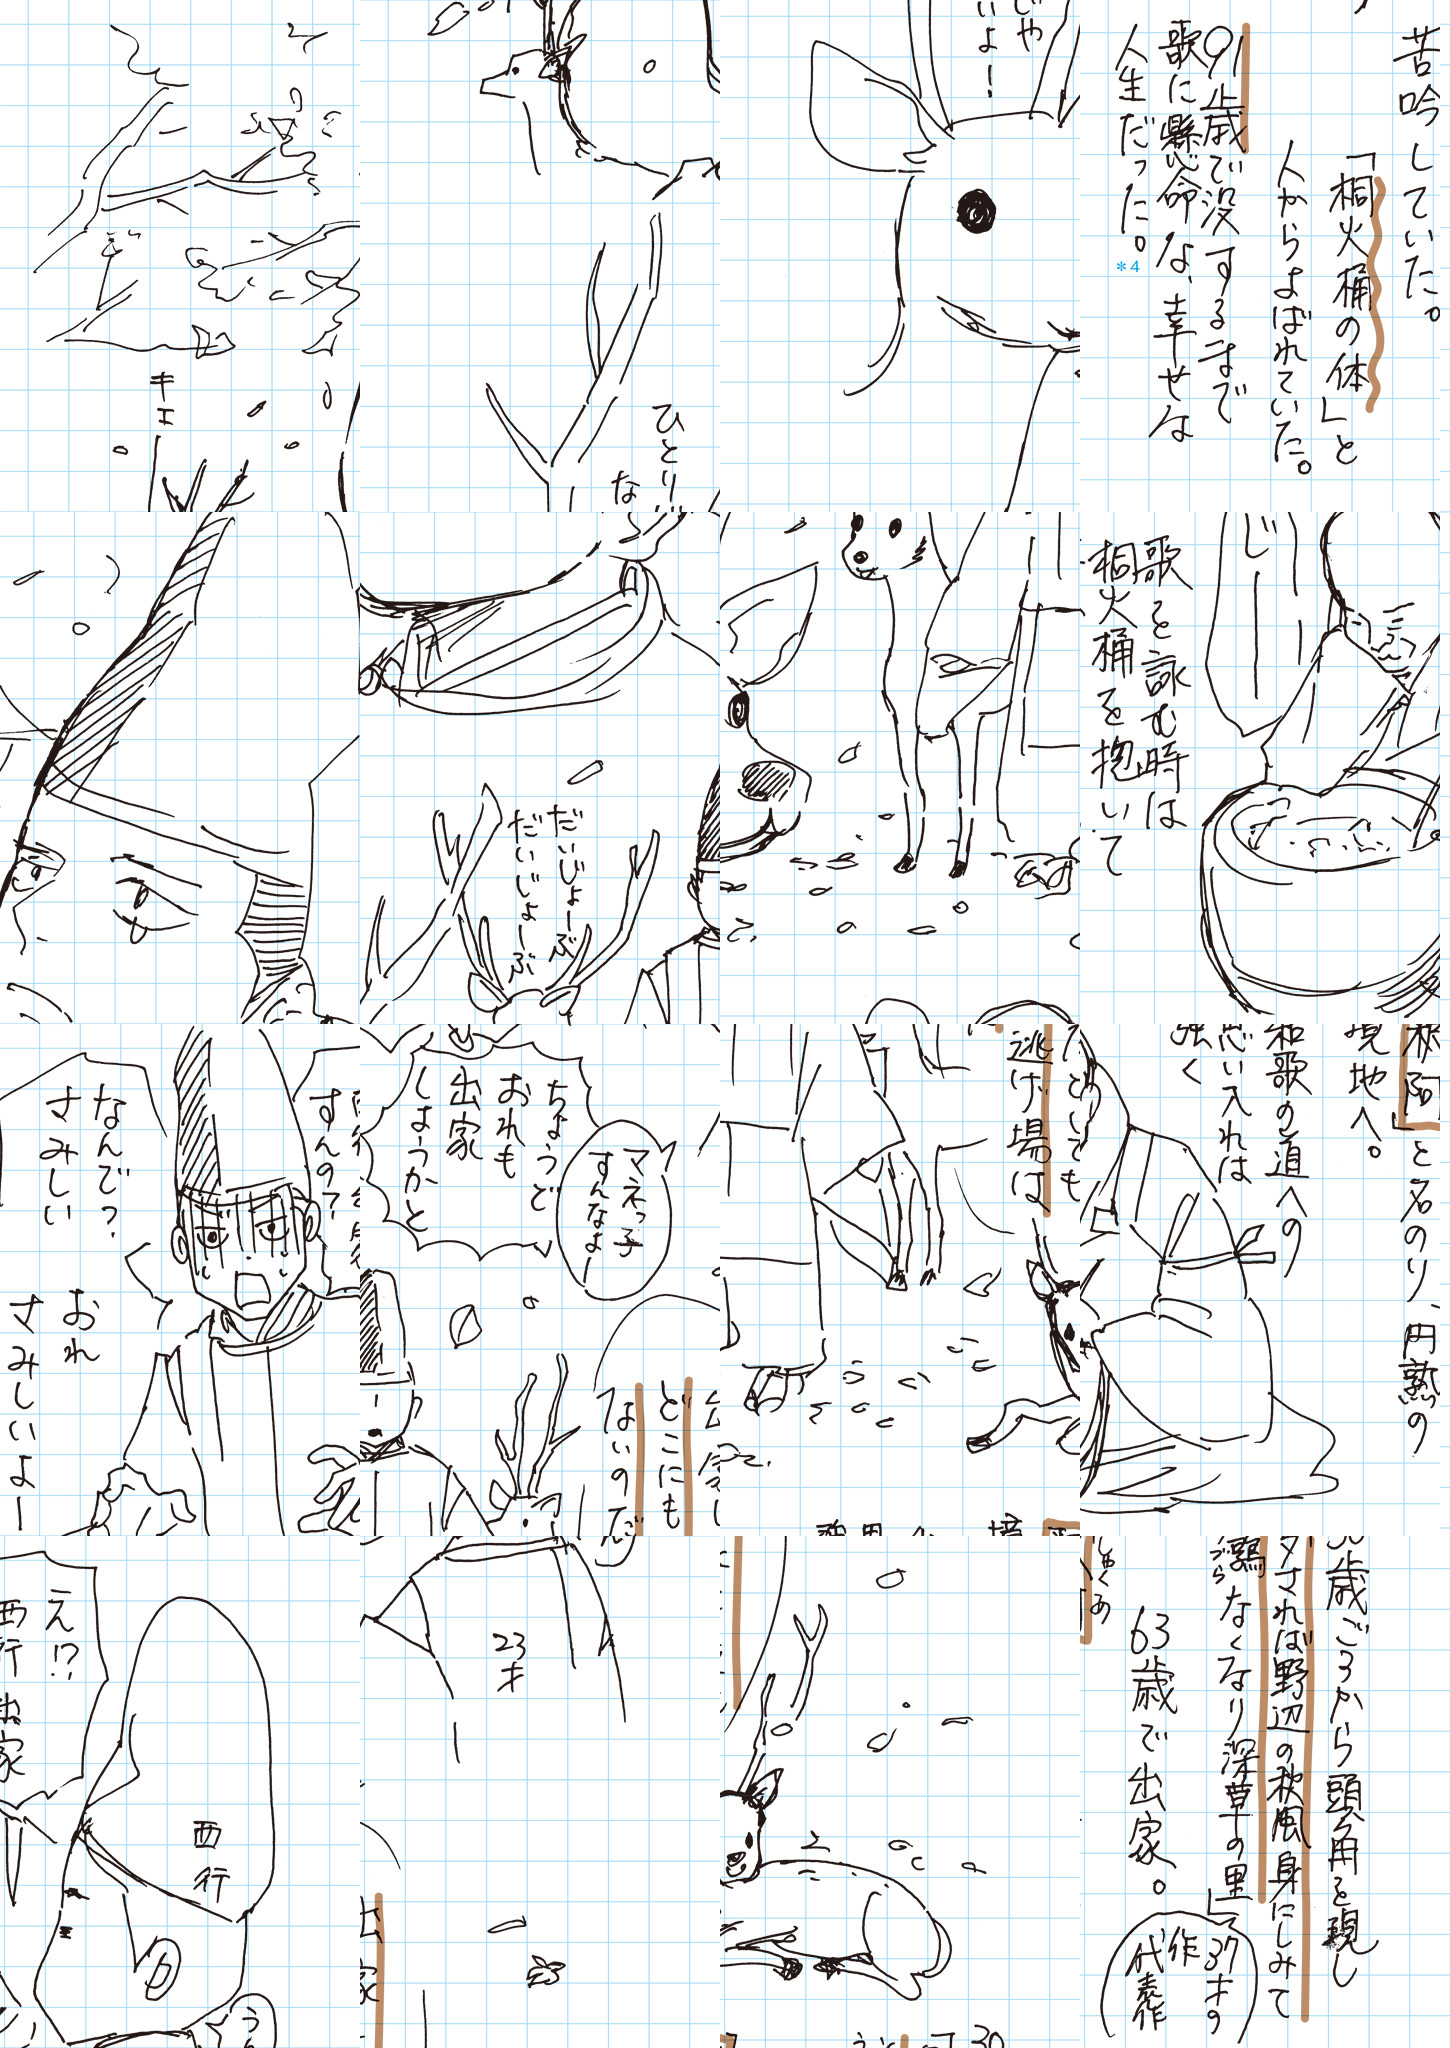 じゃ
いよ！
苦吟していた。
「桐火桶の体」と
人からよばれていた。
91歳で没するまで
歌に懸命な、幸せな
人生だった。
*4
キエ
ひとりじ
な
じ
ー
歌を詠む時は
桐火桶を抱いて
だいじょーぶ
だいじょーぶ
すんの？
なんでっ
さみしい
おれ
さみしいよー
マネっ子
すんなよー
ちょうど
おれも
出家
しようかと
どこにも
ないのだ
たとしても
逃げ場は
阿」と名のり、円熟の
境地へ。
和歌の道への
思い入れは
強く
え!?
西行出家
西行
23才
出家
歳ごろから頭角を現し
夕されば野辺の秋風身にしみて
鶉なくなり深草の里」
づら
37才の
作
代表作
63歳で出家。
しゃくあ
30